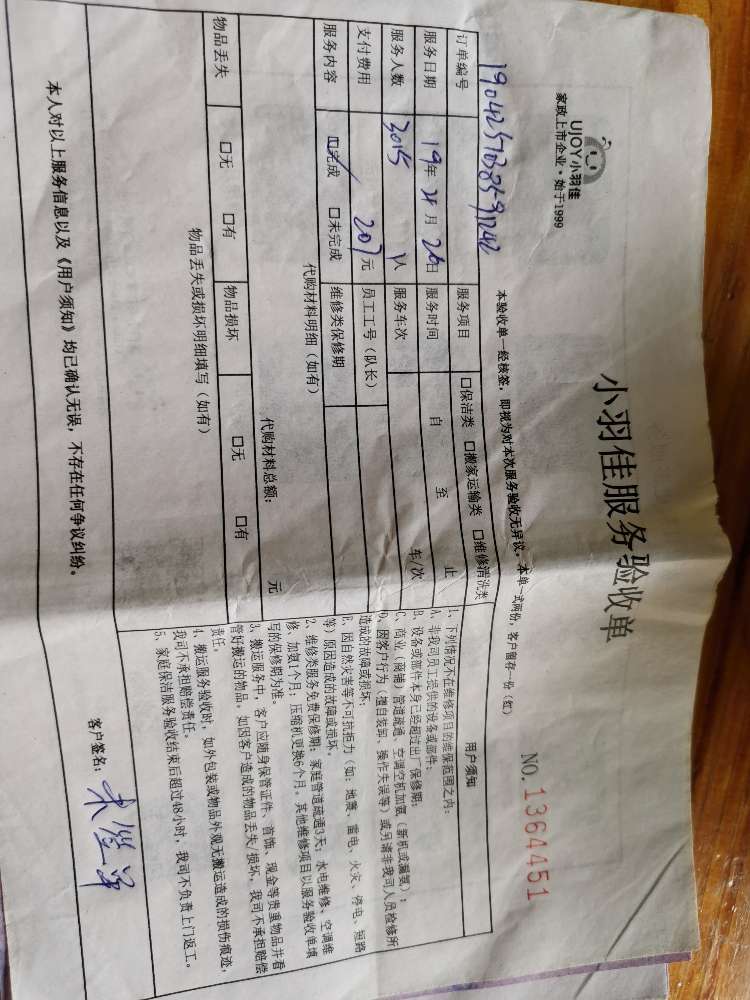 UJOY小羽佳
家政上市企业·始于1999
小羽佳服务验收单
NO.1364451
本验收单一经核签，即视为对本次服务验收无异议。本单一式两份，客户留存一份（红）
订单编号
服务项目 □保洁类 □搬家运输类 □维修清洗类
服务日期 19年4月26日 服务时间 自 至 止
服务人数 3015 人 服务车次 车/次
支付费用 207元 员工工号（队长）
服务内容 ☑完成 □未完成 维修类保修期
代购材料明细（如有）
代购材料总额： 元
物品丢失 □无 □有 物品损坏 □无 □有
物品丢失或损坏明细填写（如有）
用户须知
1、下列情况不在维修项目的维保范围之内：
A、非我司员工提供的设备或部件；
B、设备或部件本身已经超过出厂保修期；
C、商业（商铺）管道疏通、空调空机加氨（新机或漏氨）；
D、因客户行为（擅自装卸、操作失误等）或另请非我司人员检修所
造成的故障或损坏；
E、因自然灾害等不可抗拒力（如：地震、雷电、火灾、停电、短路
等）原因造成的故障或损坏。
2、维修类服务免费保修期：家庭管道疏通3天；水电维修、空调维
修、加氨1个月；压缩机更换6个月。其他维修项目以服务验收单填
写的保修期为准。
3、搬运服务中，客户应随身保管证件、首饰、现金等贵重物品并看
管好搬运的物品。如因客户造成的物品丢失/损坏，我司不承担赔偿
责任。
4、搬运服务验收时，如外包装或物品外观无搬运造成的损伤痕迹，
我司不承担赔偿责任。
5、家庭保洁服务验收结束后超过48小时，我司不负责上门返工。
本人对以上服务信息以及《用户须知》均已确认无误，不存在任何争议纠纷。
客户签名：